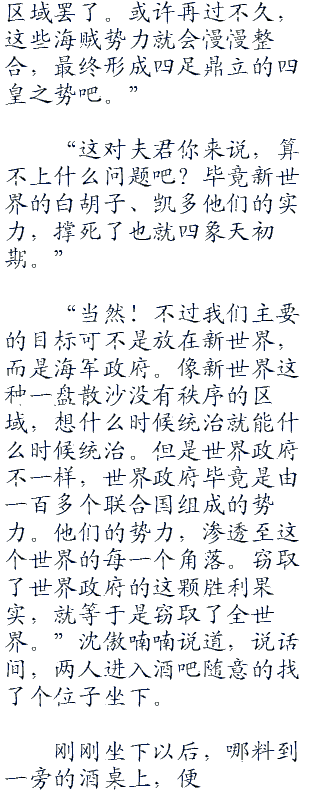 区域罢了。或许再过不久，
这些海贼势力就会慢慢整
合，最终形成四足鼎立的四
皇之势吧。”
“这对夫君你来说，算
不上什么问题吧？毕竟新世
界的白胡子、凯多他们的实
力，撑死了也就四象天初
期。”
“当然！不过我们主要
的目标可不是放在新世界，
而是海军政府。像新世界这
种一盘散沙没有秩序的区
域，想什么时候统治就能什
么时候统治。但是世界政府
不一样，世界政府毕竟是由
一百多个联合国组成的势
力。他们的势力，渗透至这
个世界的每一个角落。窃取
了世界政府的这颗胜利果
实，就等于是窃取了全世
界。”沈傲喃喃说道，说话
间，两人进入酒吧随意的找
了个位子坐下。
刚刚坐下以后，哪料到
一旁的酒桌上，便